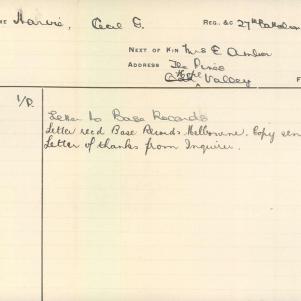 ME Harvie, Cecil G. REG. &C 27th Battalion
NEXT OF KIN Mrs E. Amber
ADDRESS The Pines
Hope Valley
F
1/P.
Letter to Base Records
Letter recd Base Records Melbourne. Copy sen
Letter of thanks from Inquirer.